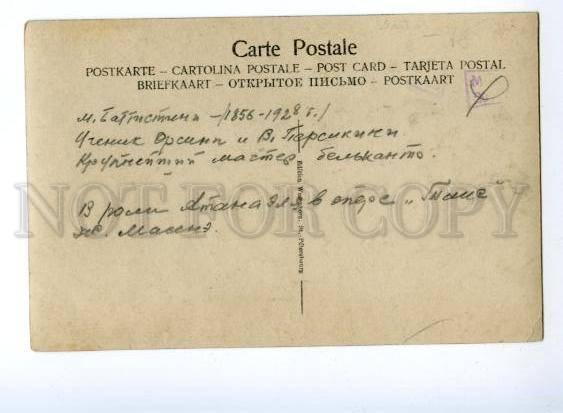 Carte Postale
POSTKARTE – CARTOLINA POSTALE – POST CARD – TARJETA POSTAL
BRIEFKAART – ОТКРЫТОЕ ПИСЬМО – POSTKAART
М. Баттистини – /1856-1928 г./
Ученик Орсини и В. Персикини.
Крупнейший мастер бельканто.
NOT FOR COPY
В роли Атанаэля в опере „Таис"
Ж. Массне.
St. Pétersbourg